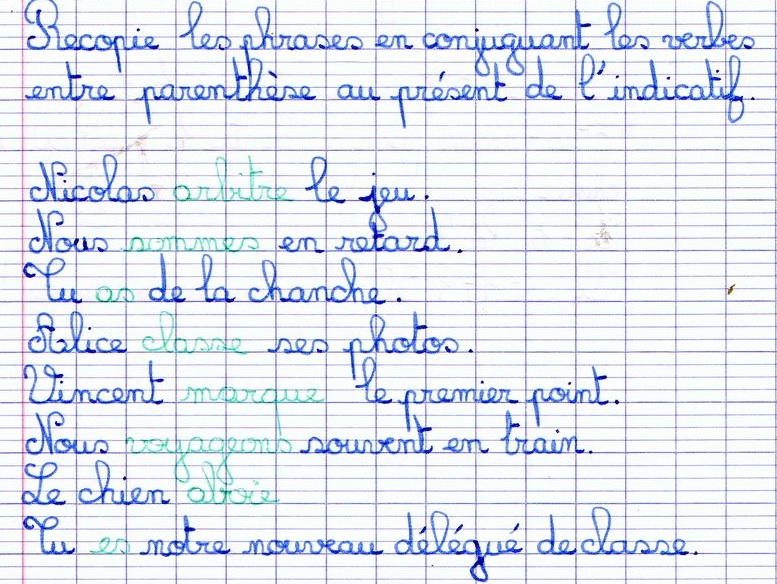 Recopie les phrases en conjuguant les verbes
entre parenthèse au présent de l'indicatif.
Nicolas arbitre le jeu.
Nous sommes en retard.
Tu as de la chanche.
Alice classe ses photos.
Vincent marque le premier point.
Nous voyageons souvent en train.
Le chien aboie
Tu es notre nouveau délégué de classe.